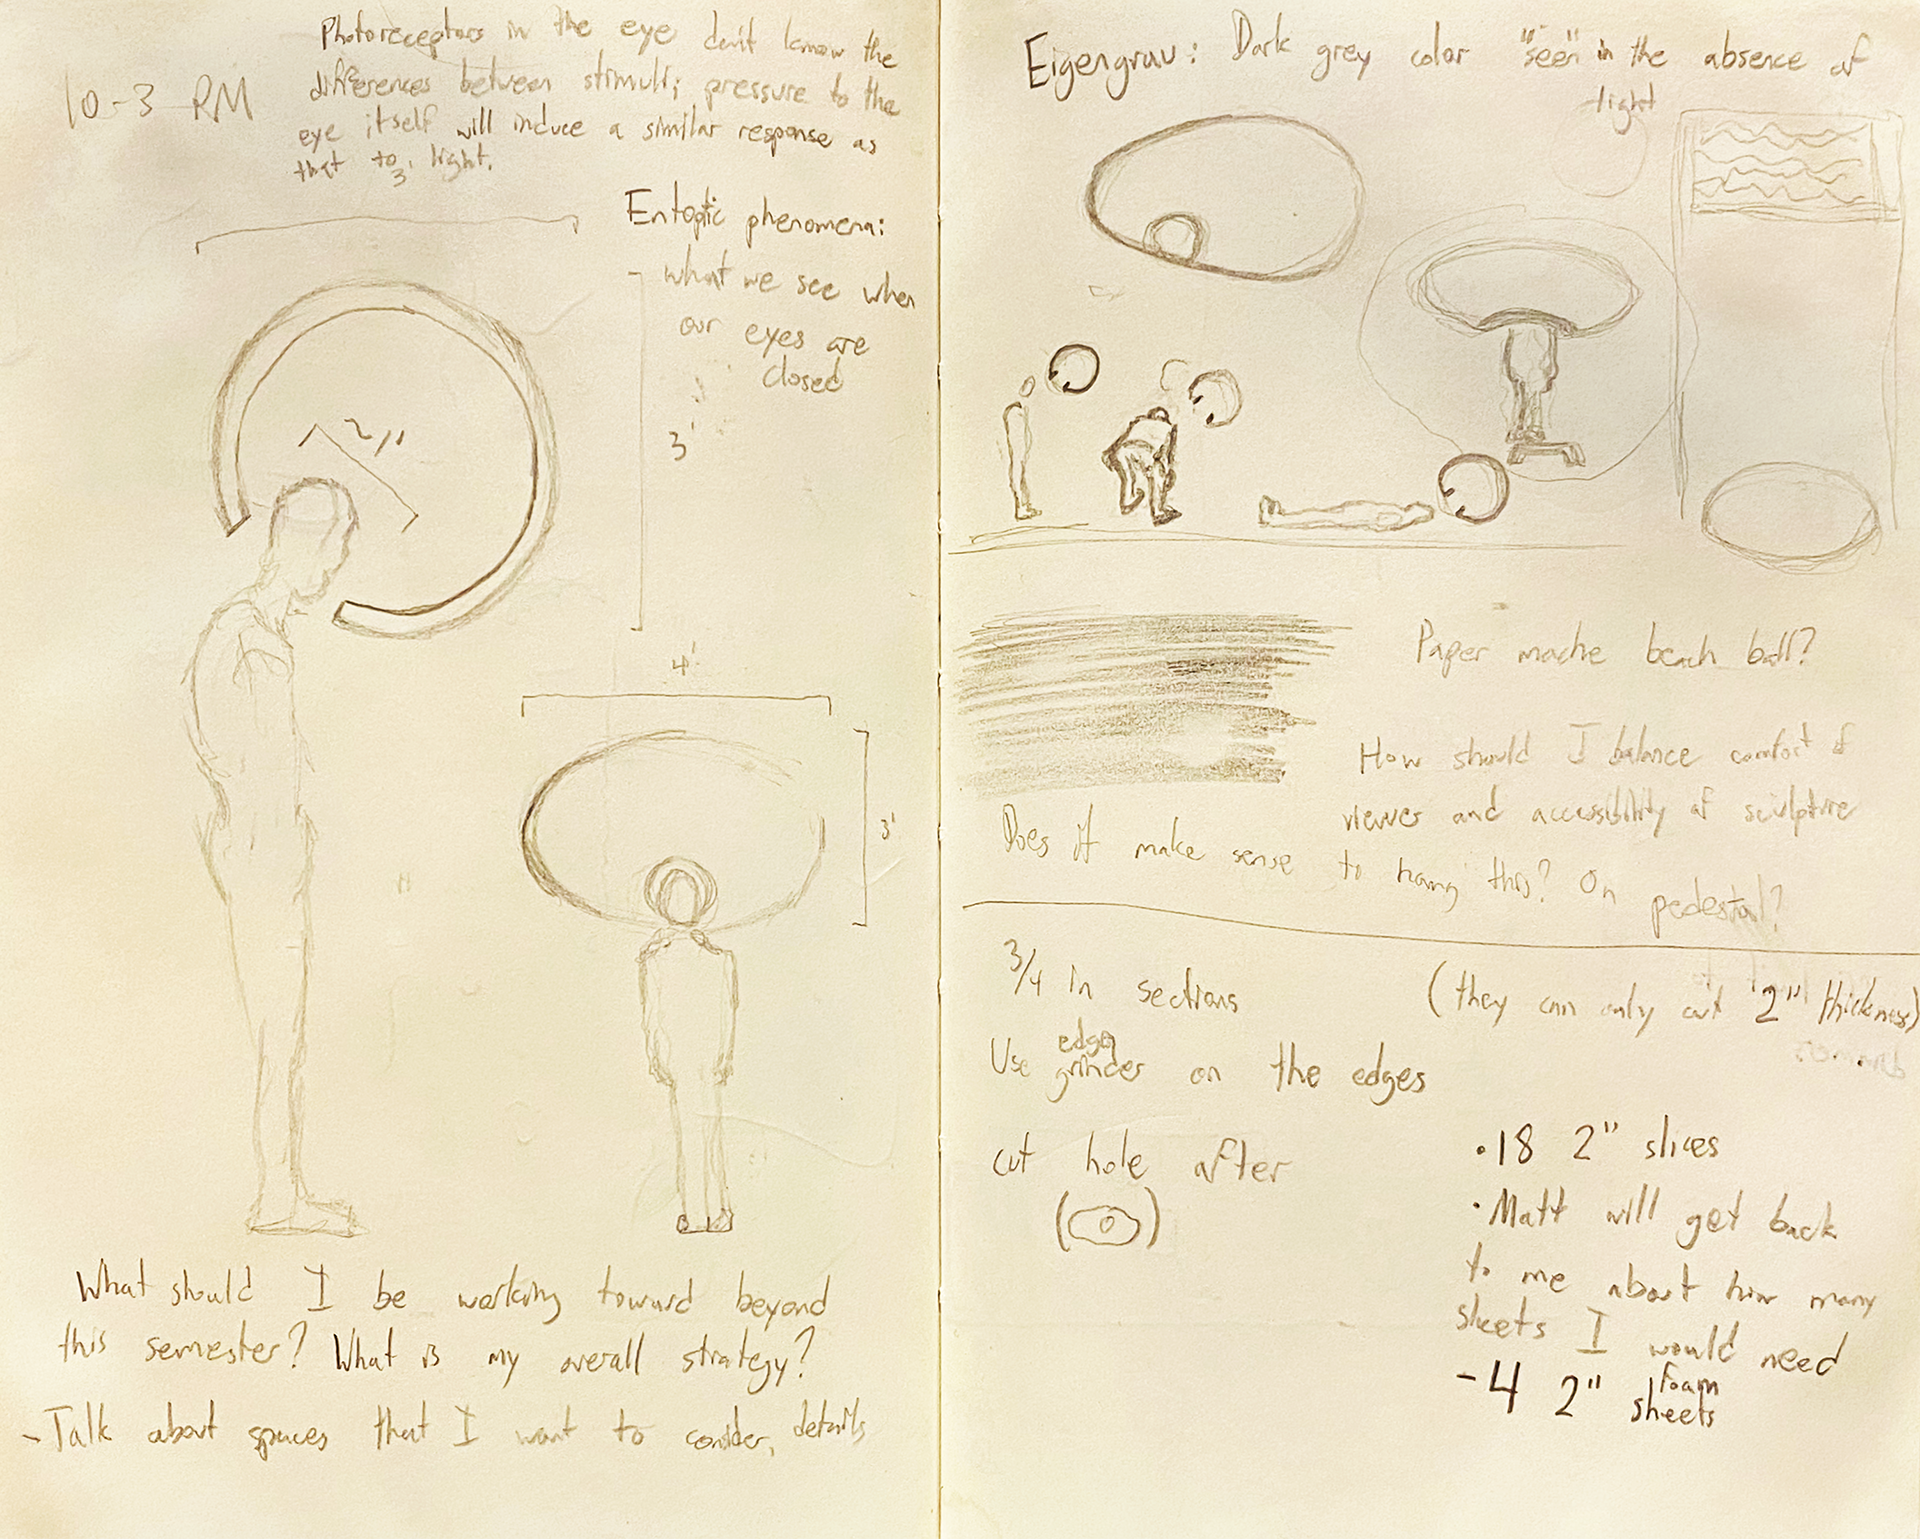 10-3 RM
Photoreceptors in the eye don't know the
differences between stimuli; pressure to the
eye itself will induce a similar response as
that to light.
3'
Entoptic phenomena:
- what we see when
our eyes are
closed
2'
3'
4'
3'
What should I be working toward beyond
this semester? What is my overall strategy?
- Talk about spaces that I want to consider, details
Eigengrau: Dark grey color "seen" in the absence of
light
Paper mache beach ball?
How should I balance comfort of
viewer and accessibility of sculpture
Does it make sense to hang this? On pedestal?
3/4 in sections
(they can only cut 2" thickness)
Use edge
grinder on the edges
cut hole after
• 18 2" slices
• Matt will get back
to me about how many
sheets I would need
- 4 2" foam
sheets